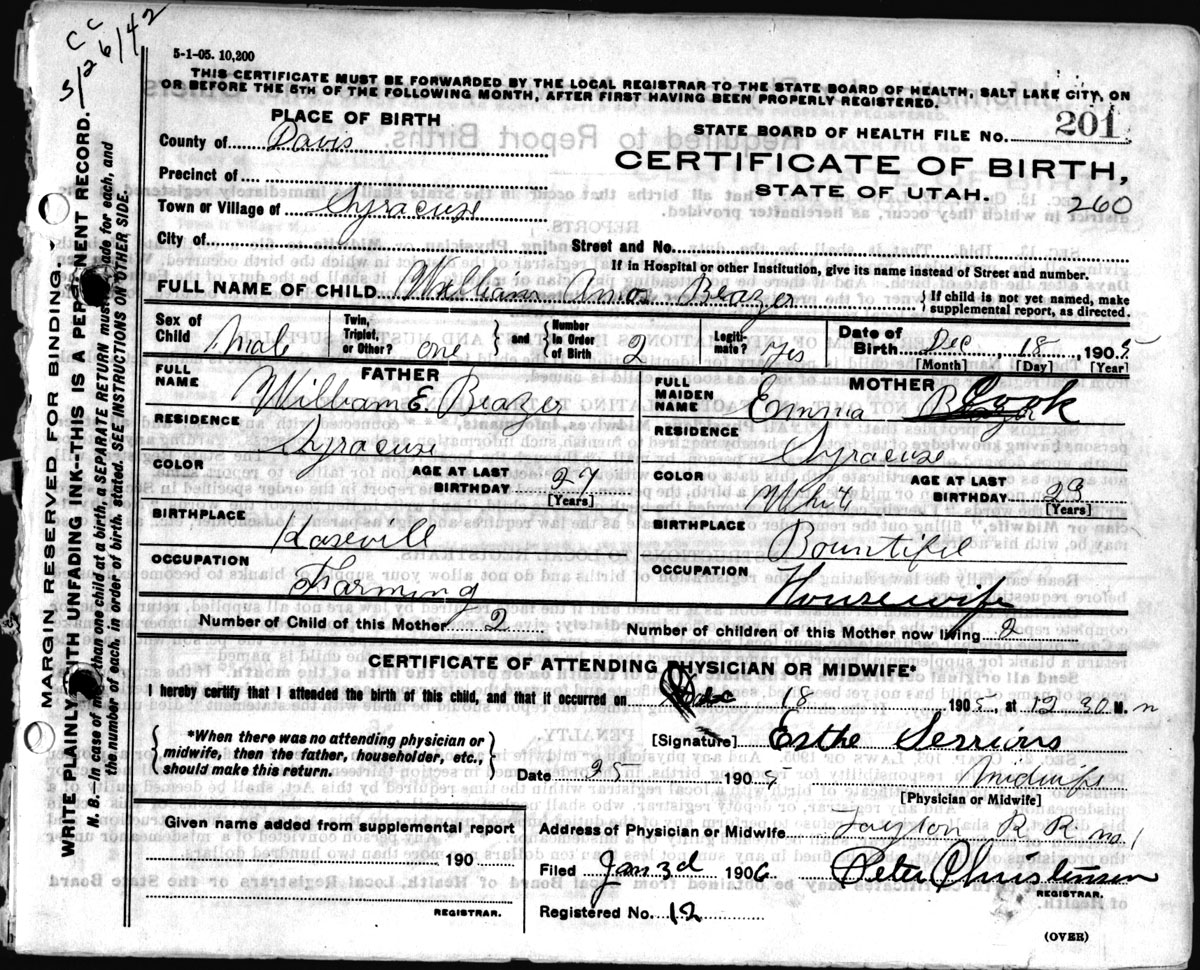 CC
5/26/42
5-1-05. 10,200
THIS CERTIFICATE MUST BE FORWARDED BY THE LOCAL REGISTRAR TO THE STATE BOARD OF HEALTH, SALT LAKE CITY, ON
OR BEFORE THE 5TH OF THE FOLLOWING MONTH, AFTER FIRST HAVING BEEN PROPERLY REGISTERED.
PLACE OF BIRTH
STATE BOARD OF HEALTH FILE No. 201
County of Davis
CERTIFICATE OF BIRTH,
Precinct of
STATE OF UTAH.
260
Town or Village of Syracuse
City of Street and No.
If in Hospital or other Institution, give its name instead of Street and number.
FULL NAME OF CHILD William Amos Beazer { If child is not yet named, make supplemental report, as directed.
Sex of Child Male Twin, Triplet, or Other? one } and { Number In Order of Birth 2 Legiti-mate? yes Date of Birth Dec 18, 1905
[Month] [Day] [Year]
FATHER MOTHER
FULL NAME William E. Beazer FULL MAIDEN NAME Emma Cook
RESIDENCE Syracuse RESIDENCE Syracuse
COLOR AGE AT LAST BIRTHDAY 27 [Years] COLOR Whit AGE AT LAST BIRTHDAY 23 [Years]
BIRTHPLACE Kasevill BIRTHPLACE Bountifil
OCCUPATION Farming OCCUPATION Housewife
Number of Child of this Mother 2 Number of children of this Mother now living 2
CERTIFICATE OF ATTENDING PHYSICIAN OR MIDWIFE*
I hereby certify that I attended the birth of this child, and that it occurred on Dec 18 1905, at 12 30 M. n
{ *When there was no attending physician or midwife, then the father, householder, etc., should make this return. }
[Signature] Esthe
Date 25 1905 Midwife
[Physician or Midwife]
Given name added from supplemental report
Address of Physician or Midwife Layton R R m 1
190
Filed Jan 3d 1906 Peter Christensen
REGISTRAR.
REGISTRAR.
Registered No. 12
(OVER)
MARGIN RESERVED FOR BINDING.
WRITE PLAINLY WITH UNFADING INK--THIS IS A PERMENENT RECORD.
N. B.--In case of more than one child at a birth, a SEPARATE RETURN must be made for each, and
the number of each, in order of birth, stated. SEE INSTRUCTIONS ON OTHER SIDE.